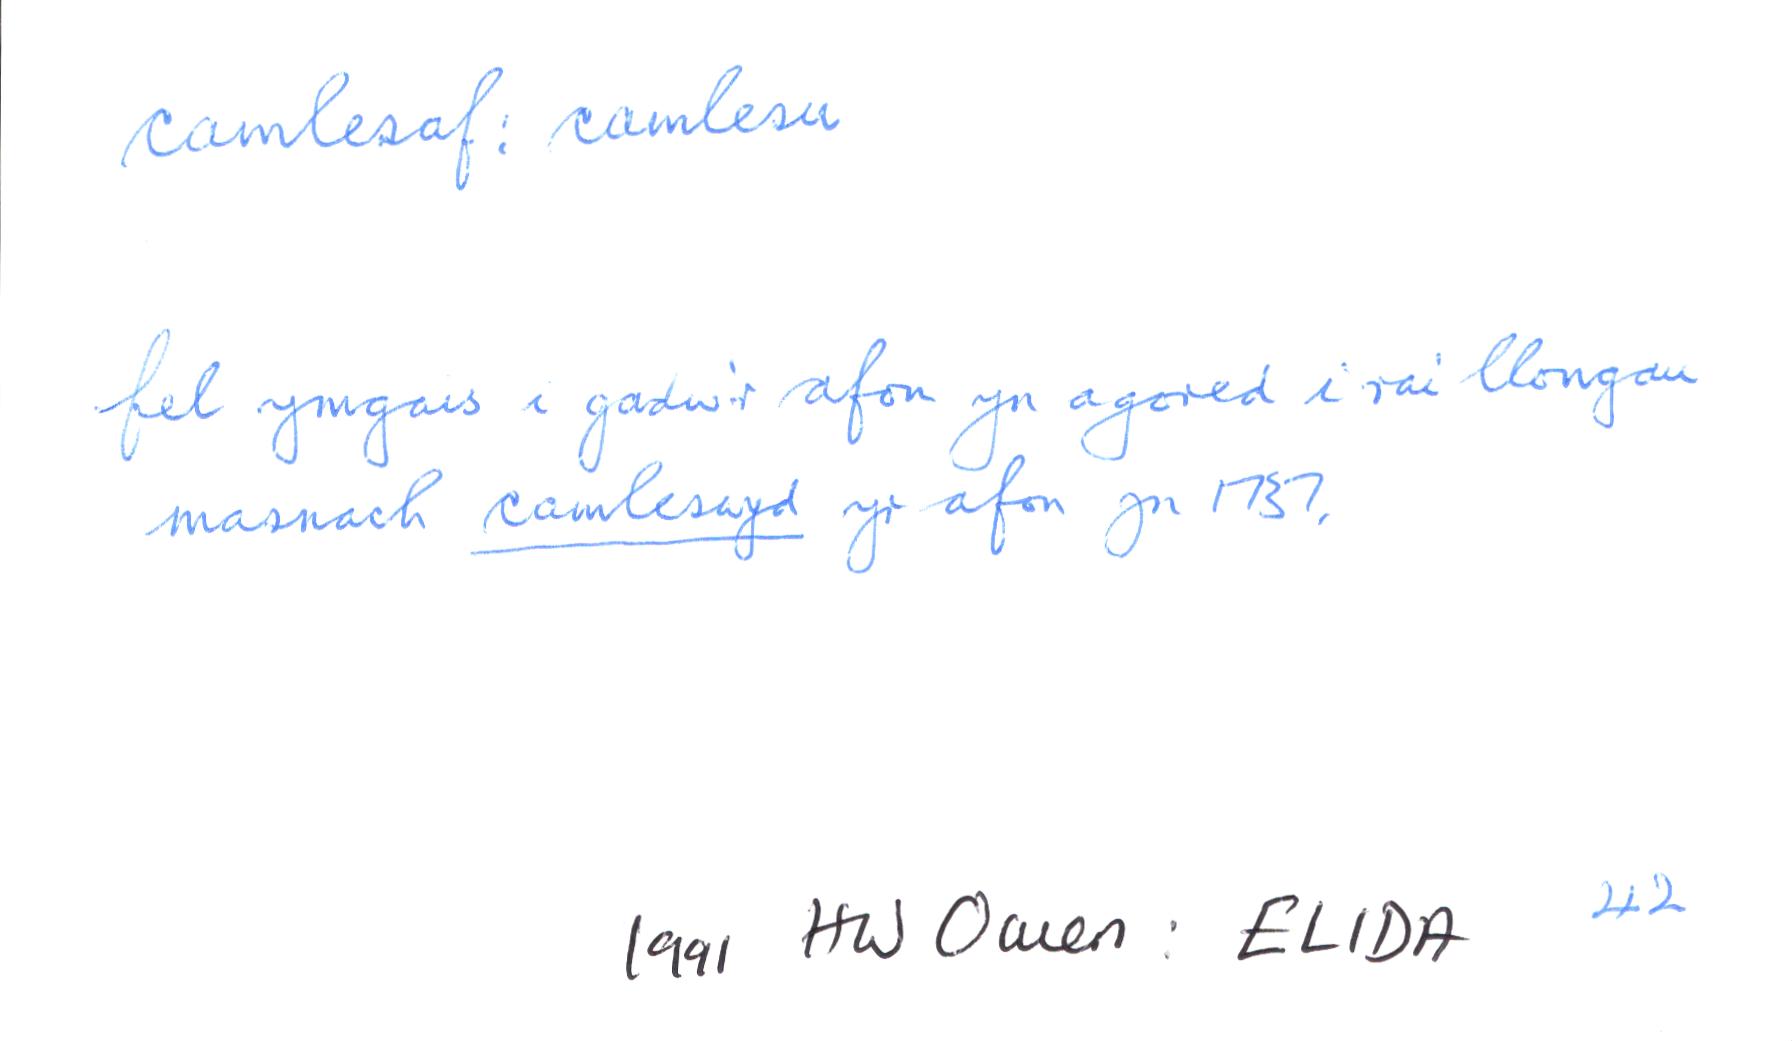 camlesaf: camlesu
fel ymgais i gadw'r afon yn agored i rai llongau
masnach camleswyd yr afon yn 1737.
42
1991 HW Owen: ELIDA